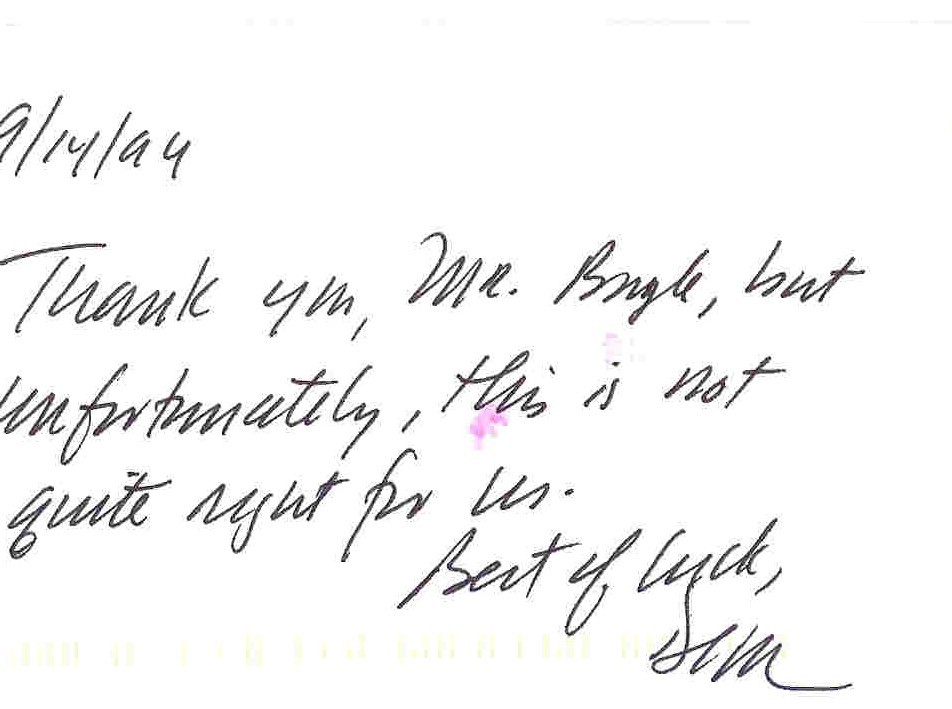 9/14/94
Thank you, Mr. Bugle, but
unfortunately, this is not
quite right for us.
Best of luck,